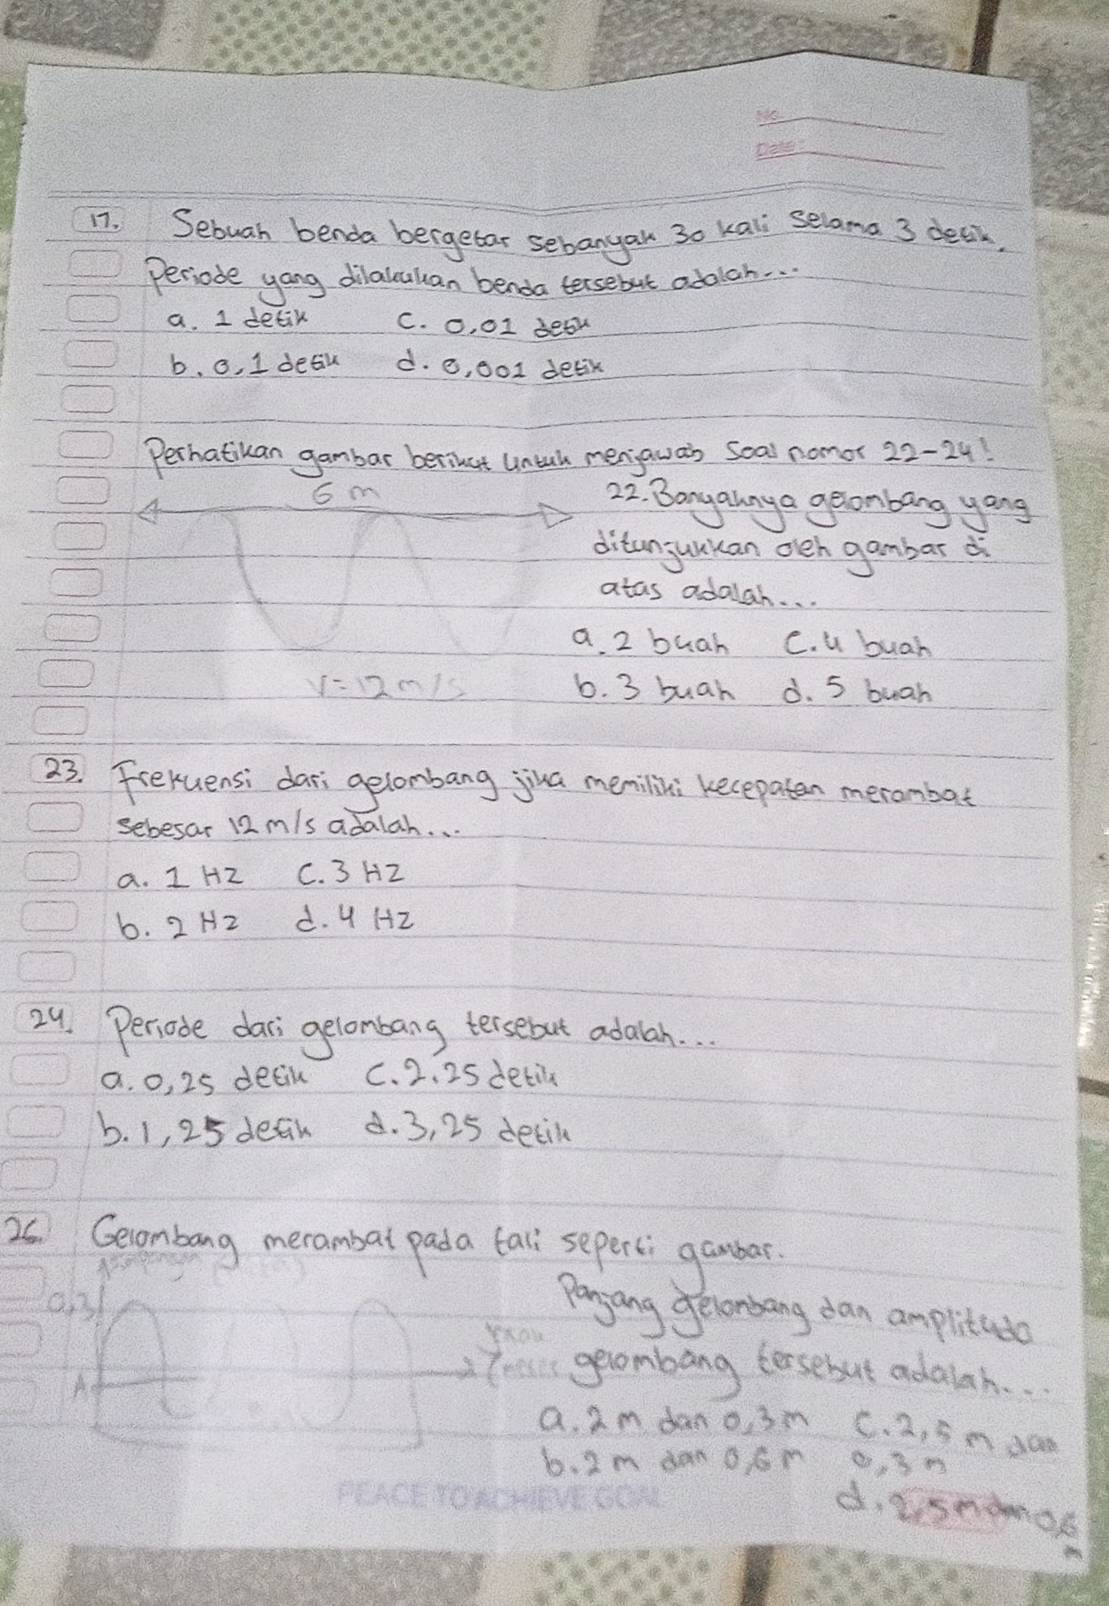 No.
Date:
17. Sebuah benda bergetar sebanyak 30 kali selama 3 detik.
Periode yang dilakukan benda tersebut adalah...
a. 1 detik c. 0,01 detik
b. 0,1 detik d. 0,001 detik
Perhatikan gambar berikut untuk menjawab soal nomor 22-24!
6 m
22. Banyaknya gelombang yang
ditunjukkan oleh gambar di
atas adalah...
a. 2 buah c. 4 buah
b. 3 buah d. 5 buah
V = 12 m/s
23. Frekuensi dari gelombang jika memiliki kecepatan merambat
sebesar 12 m/s adalah...
a. 1 Hz c. 3 Hz
b. 2 Hz d. 4 Hz
24. Periode dari gelombang tersebut adalah...
a. 0,25 detik c. 2.25 detik
b. 1,25 detik d. 3,25 detik
26. Gelombang merambat pada tali seperti gambar.
0,3
A
Panjang gelombang dan amplitudo
gelombang tersebut adalah...
a. 2 m dan 0,3 m c. 2,5 m dan
b. 2 m dan 0,6 m 0,3 m
d. 2,5 m dan 0,6
m
PEACE TO ACHIEVE GOAL